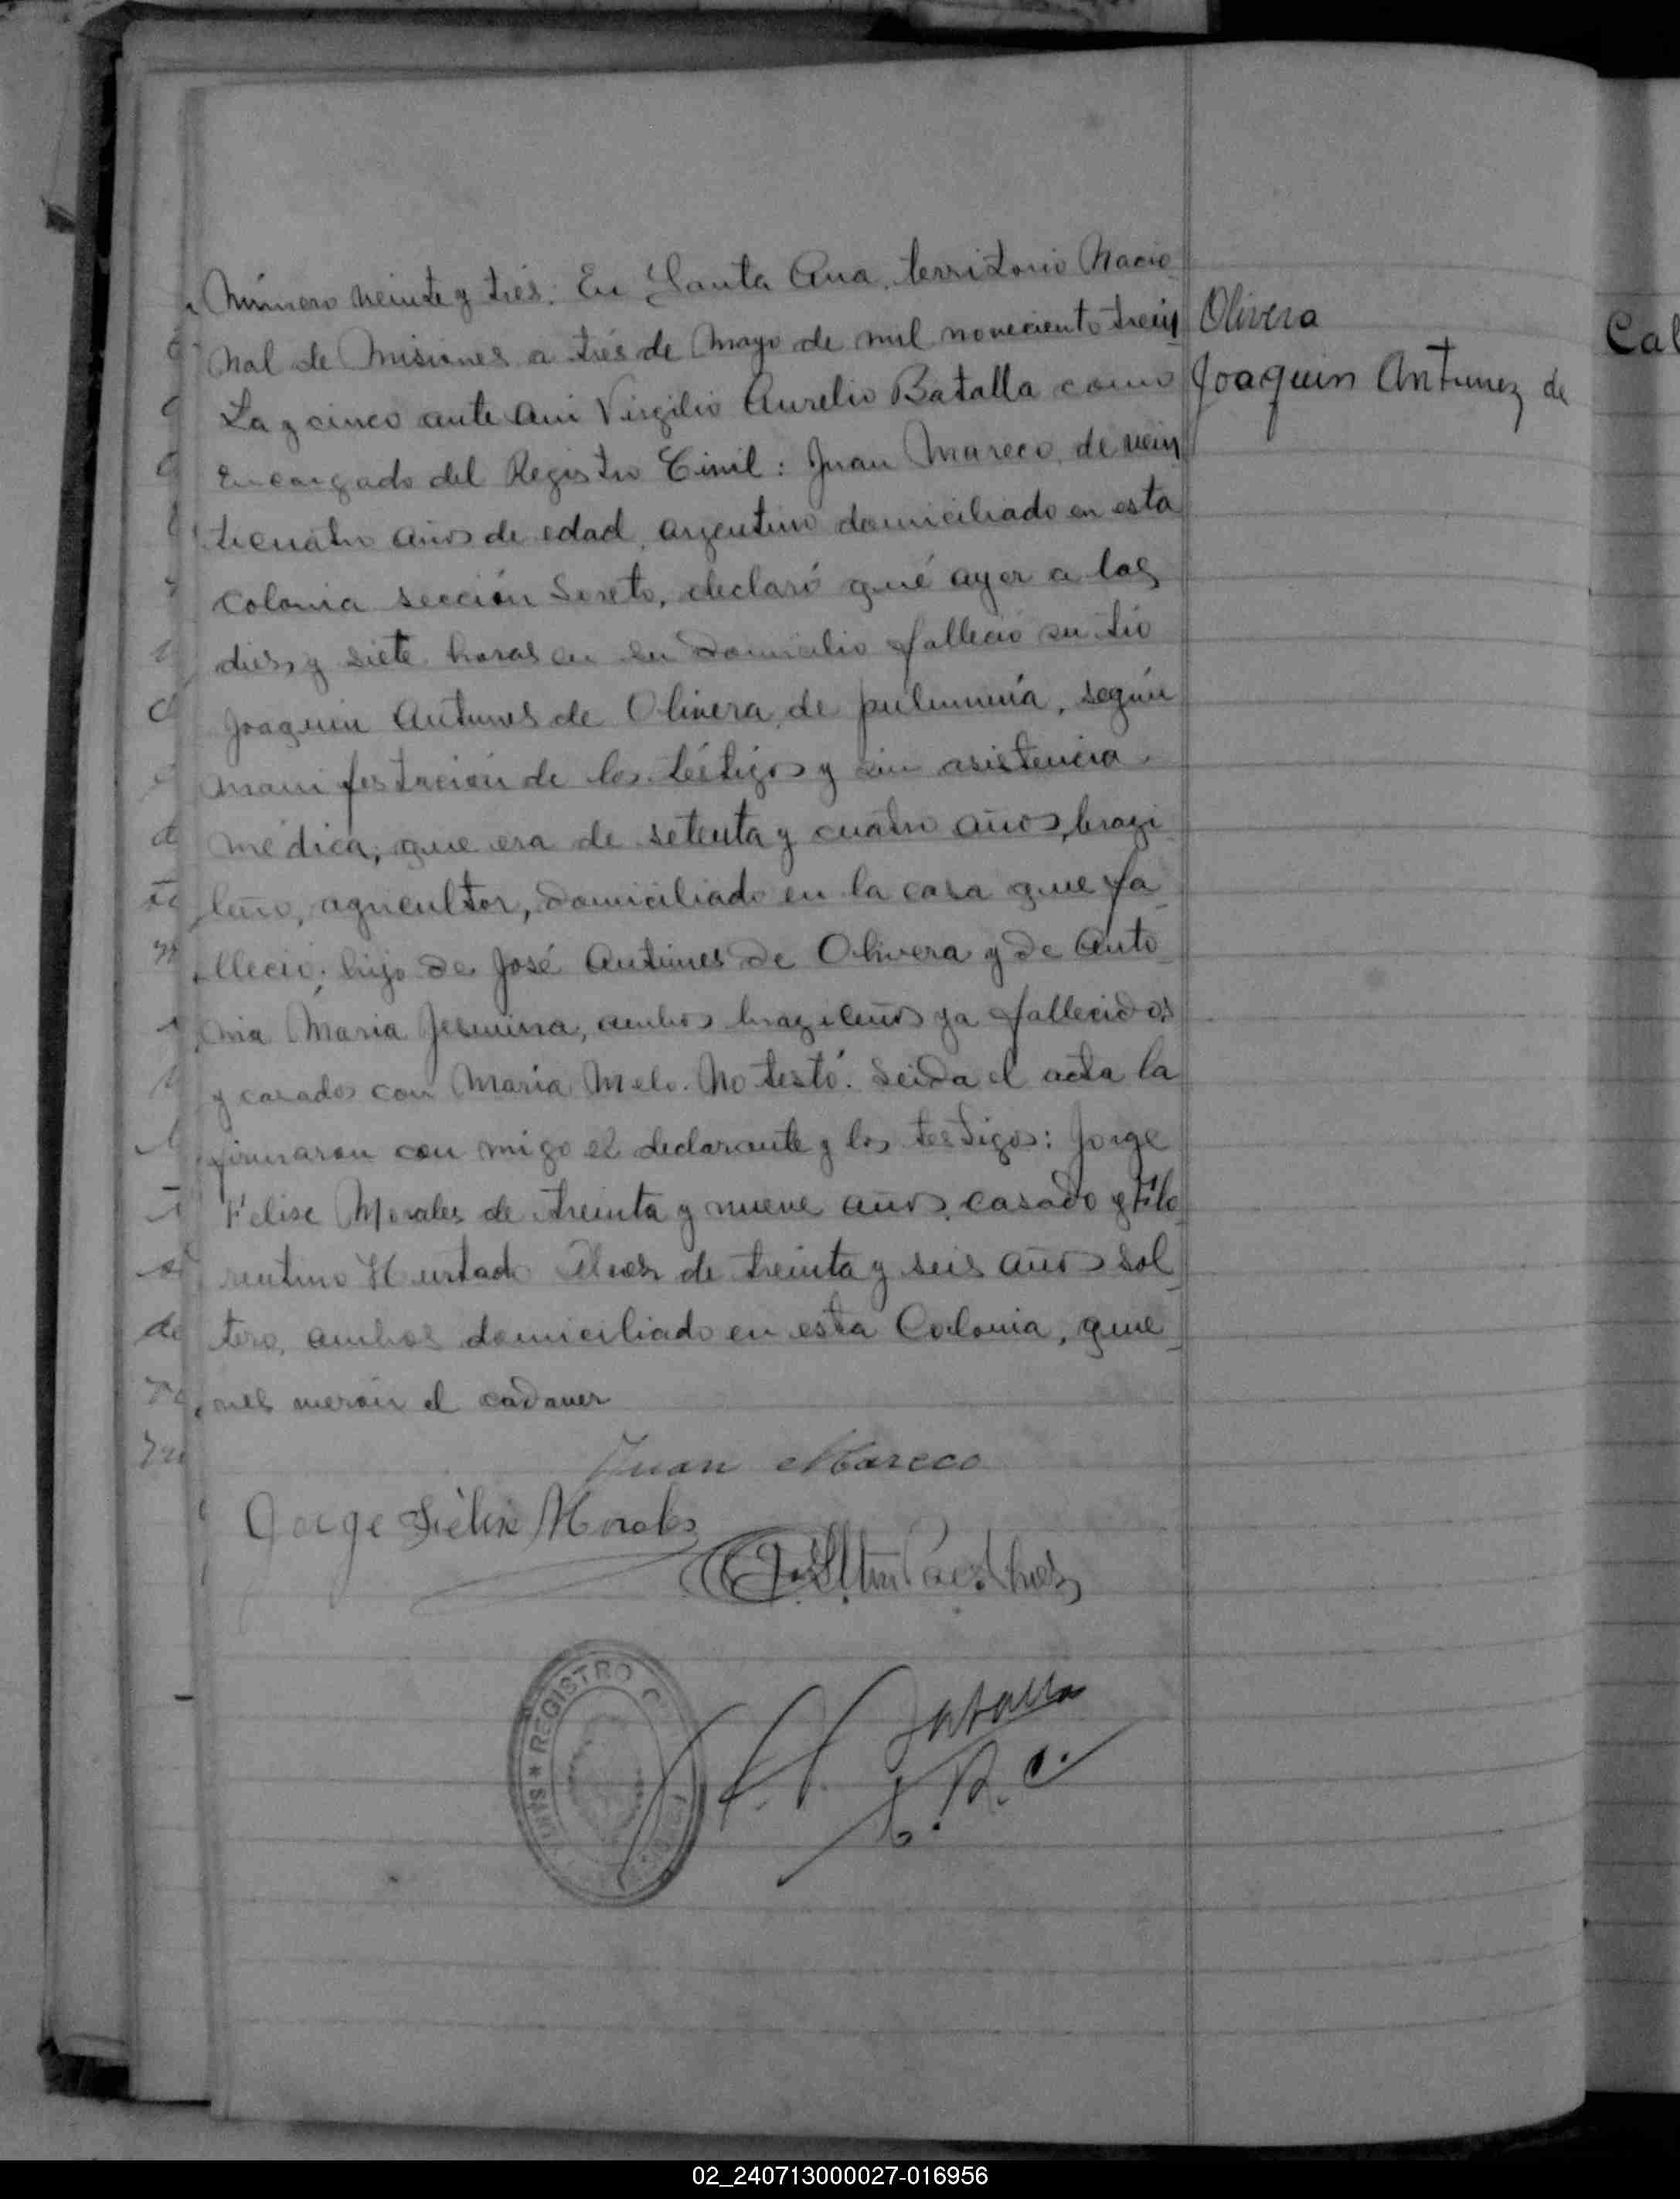 Número veinte y trés: En Santa Ana, territorio Nacio
Olivera
nal de Misiones a trés de Mayo de mil noveciento trein
Joaquin Antunez de
Cal
ta y cinco ante mi Virgilio Aurelio Batalla como
Encargado del Registro Civil: Juan Mareco, de vein
ticuatro años de edad, argentino domiciliado en esta
Colonia sección Loreto, declaró qué ayer a las
dies y siete horas en su domicilio falleció su tio
Joaquin Antunes de Olivera, de pulmunía, según
manifestación de los téstigos y sin asistencia
médica; que era de setenta y cuatro años, brazi
leño, agricultor, domiciliado en la casa que fa
lleció; hijo de José Antunes de Olivera y de Anto
nia Maria Jesuina, ambos brazileños ya fallecidos
y casados con Maria Melo. No testó. Leida el acta la
firmaron con migo el declarante y los testigos: Jorge
Felise Morales de treinta y nueve años, casado y Flo
rentino Hurtado de treinta y seis años sol
tero, ambos domiciliado en esta Colonia, quie
nes vierón el cadaver
Juan Mareco
Jorge Félix Morales
Batalla
E. R. C.
REGISTRO C
02_240713000027-016956